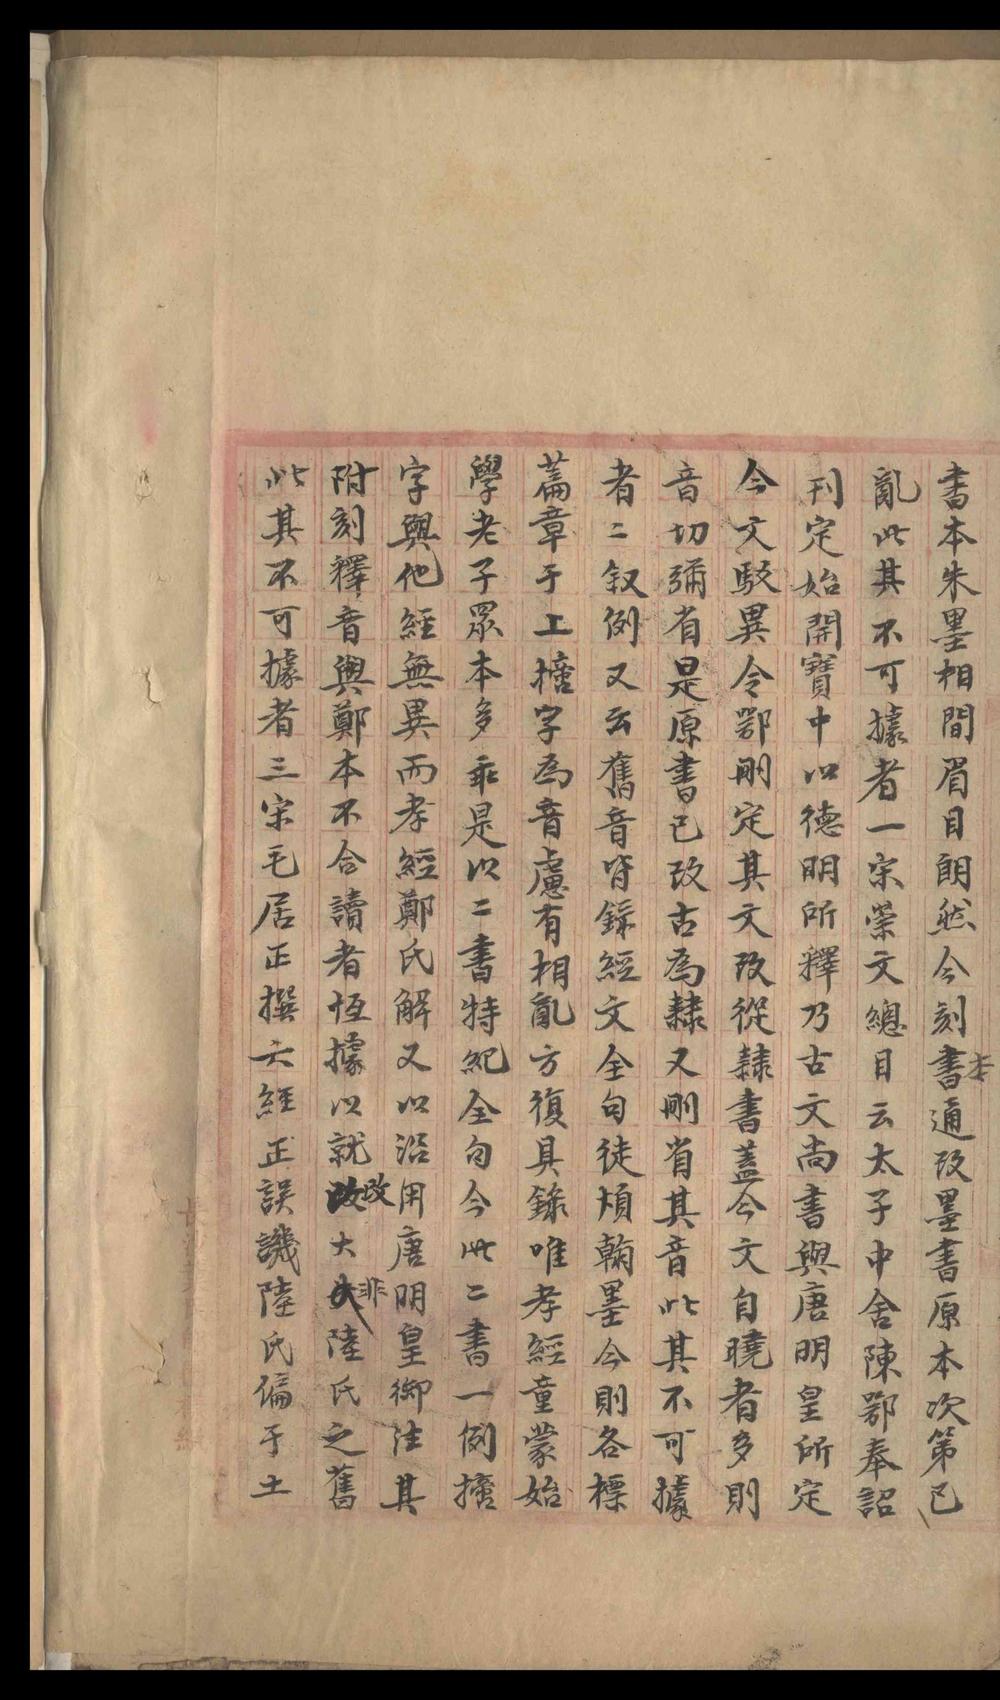 書本朱墨相間眉目朗然今刻書本通改墨書原本次第已
亂此其不可據者一宋崇文總目云太子中舍陳鄂奉詔
刊定始開寶中以德明所釋乃古文尚書與唐明皇所定
今文駮異令鄂刪定其文改從隸書蓋今文自曉者多則
音切彌省是原書已改古為隸又刪省其音此其不可據
者二叙例又云舊音皆錄經文全句徒煩翰墨今則各標
篇章于上摘字為音慮有相亂方復具錄唯孝經童蒙始
學老子眾本多乖是以二書特紀全句今此二書一例摘
字與他經無異而孝經鄭氏解又以沿用唐明皇御注其
附刻釋音與鄭本不合讀者恆據以就改大非陸氏之舊
此其不可據者三宋毛居正撰六經正誤譏陸氏偏于土